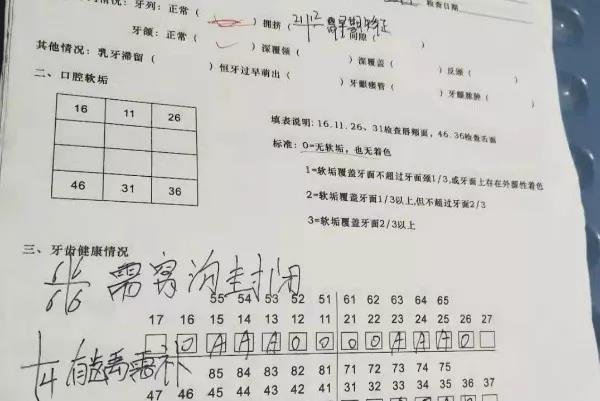 情况：牙列：正常（ 拥挤（ 21 12 需早期矫正
检查日期
牙颌：正常（ ） 深覆颌（ ） 间隙（
其他情况：乳牙滞留（ ） 深覆盖（ ） 反颌（
） 恒牙过早萌出（ ） 牙龈瘘管（ ） 牙龈脓肿（
二、口腔软垢
16 11 26
46 31 36
填表说明：16.11.26、31检查唇颊面，46.36检查舌面
标准：0=无软垢，也无着色
1=软垢覆盖牙面不超过牙面颈1/3，或牙面上存在外源性着色
2=软垢覆盖牙面1/3以上，但不超过牙面2/3
3=软垢覆盖牙面2/3以上
三、牙齿健康情况
6 6 需窝沟封闭
6 6
55 54 53 52 51 61 62 63 64 65
17 16 15 14 13 12 11 21 22 23 24 25 26 27
0 A A A 0 0 0 0 A A A 0
4 有龋需补
85 84 83 82 81 71 72 73 74 75
47 46 45 44 43 42 41 31 32 33 34 35 36 37